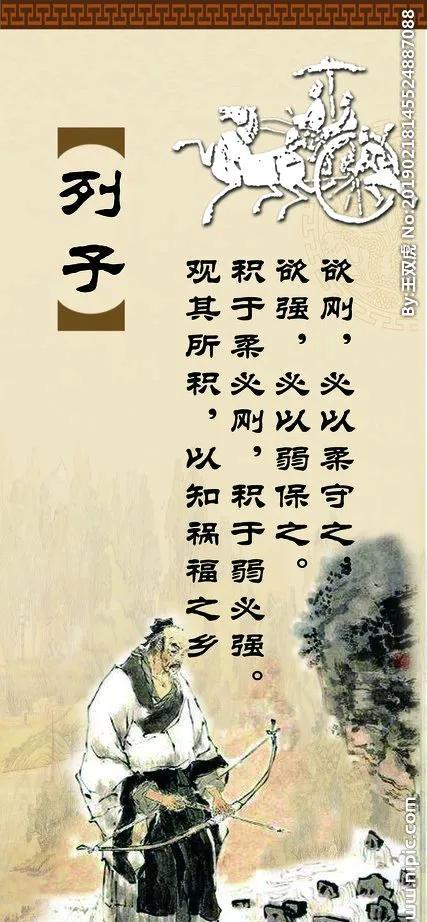 列子
欲刚，必以柔守之，
欲强，必以弱保之。
积于柔必刚，积于弱必强。
观其所积，以知祸福之乡
By:王双虎 No:20190218145524887088
www.nipic.com